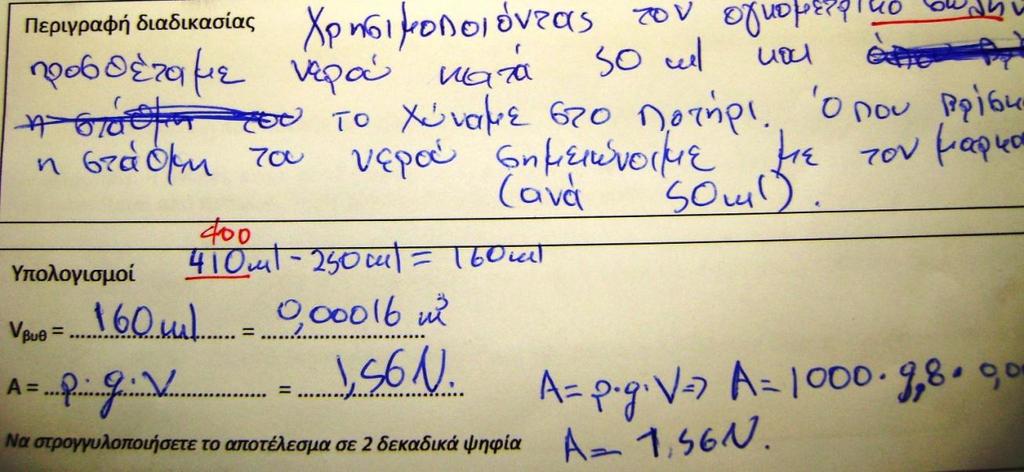 Περιγραφή διαδικασίας Χρησιμοποιόντας τον ογκομετρικό
προσθέταμε νερού κατά 50 ml και
η στάθμη του το χύναμε στο ποτήρι. Όπου
η στάθμη του νερού σημειώνοιμε με τον
(ανά 50ml).
400
Υπολογισμοί 410ml - 250ml = 160ml
Vβυθ = 160ml = 0,00016 m³
A = ρ·g·V = 1,56N. A = ρ·g·V => A = 1000· 9,8 ·
Να στρογγυλοποιήσετε το αποτέλεσμα σε 2 δεκαδικά ψηφία A = 1,56N.